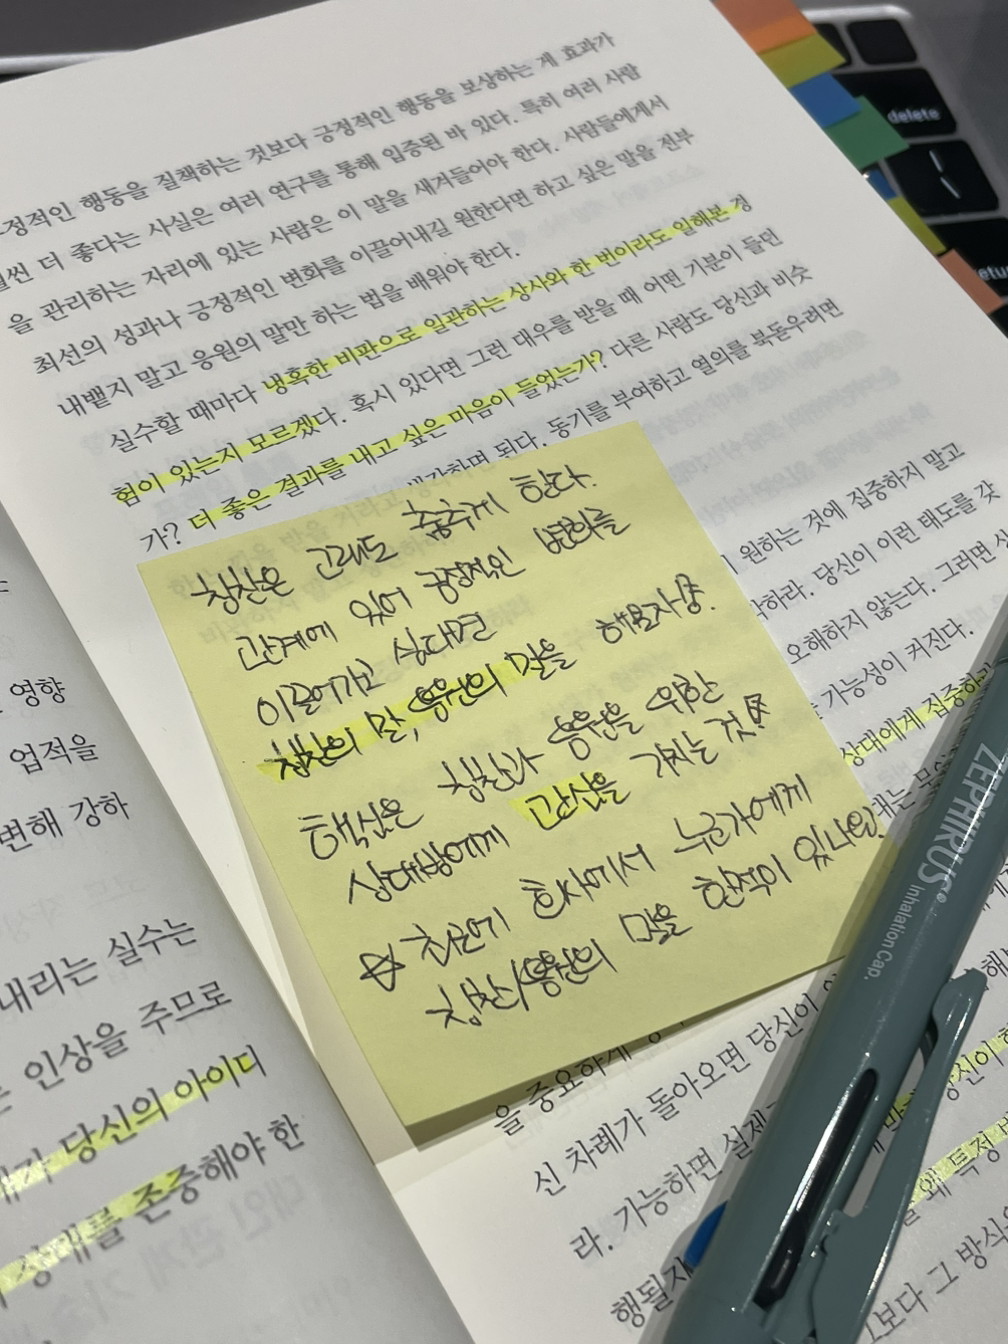 정적인 행동을 질책하는 것보다 긍정적인 행동을 보상하는 게 효과가
씬 더 좋다는 사실은 여러 연구를 통해 입증된 바 있다. 특히 여러 사람
을 관리하는 자리에 있는 사람은 이 말을 새겨들어야 한다. 사람들에게서
최선의 성과나 긍정적인 변화를 이끌어내길 원한다면 하고 싶은 말을 전부
내뱉지 말고 응원의 말만 하는 법을 배워야 한다.
실수할 때마다 냉혹한 비판으로 일관하는 상사와 한 번이라도 일해본 경
험이 있는지 모르겠다. 혹시 있다면 그런 대우를 받을 때 어떤 기분이 들던
가? 더 좋은 결과를 내고 싶은 마음이 들었는가? 다른 사람도 당신과 비슷
생각하면 된다. 동기를 부여하고 열의를 북돋우려면
칭찬은 고래도 춤추게 한다.
관계에 있어 긍정적인 변화를
이끌어가고 싶다면
칭찬의 말, 응원의 말을 해보자.
핵심은 칭찬과 응원을 위한
상대방에게 관심을 가지는 것!
☆ 최근에 회사에서 누군가에게
칭찬/응원의 말을 한적이 있나요?
원하는 것에 집중하지 말고
하라. 당신이 이런 태도를 갖
오해하지 않는다. 그러면 상
가능성이 커진다.
상대에게 집중하
을 중요하게
신 차례가 돌아오면 당신이
라. 가능하면 실제
행될지
당신이
왜 특정
보다 그 방식
영향
업적을
변해 강하
내리는 실수는
인상을 주므로
당신의 아이디
상대를 존중해야 한
ZEPHIRUS
Inhalation Cap.
delete